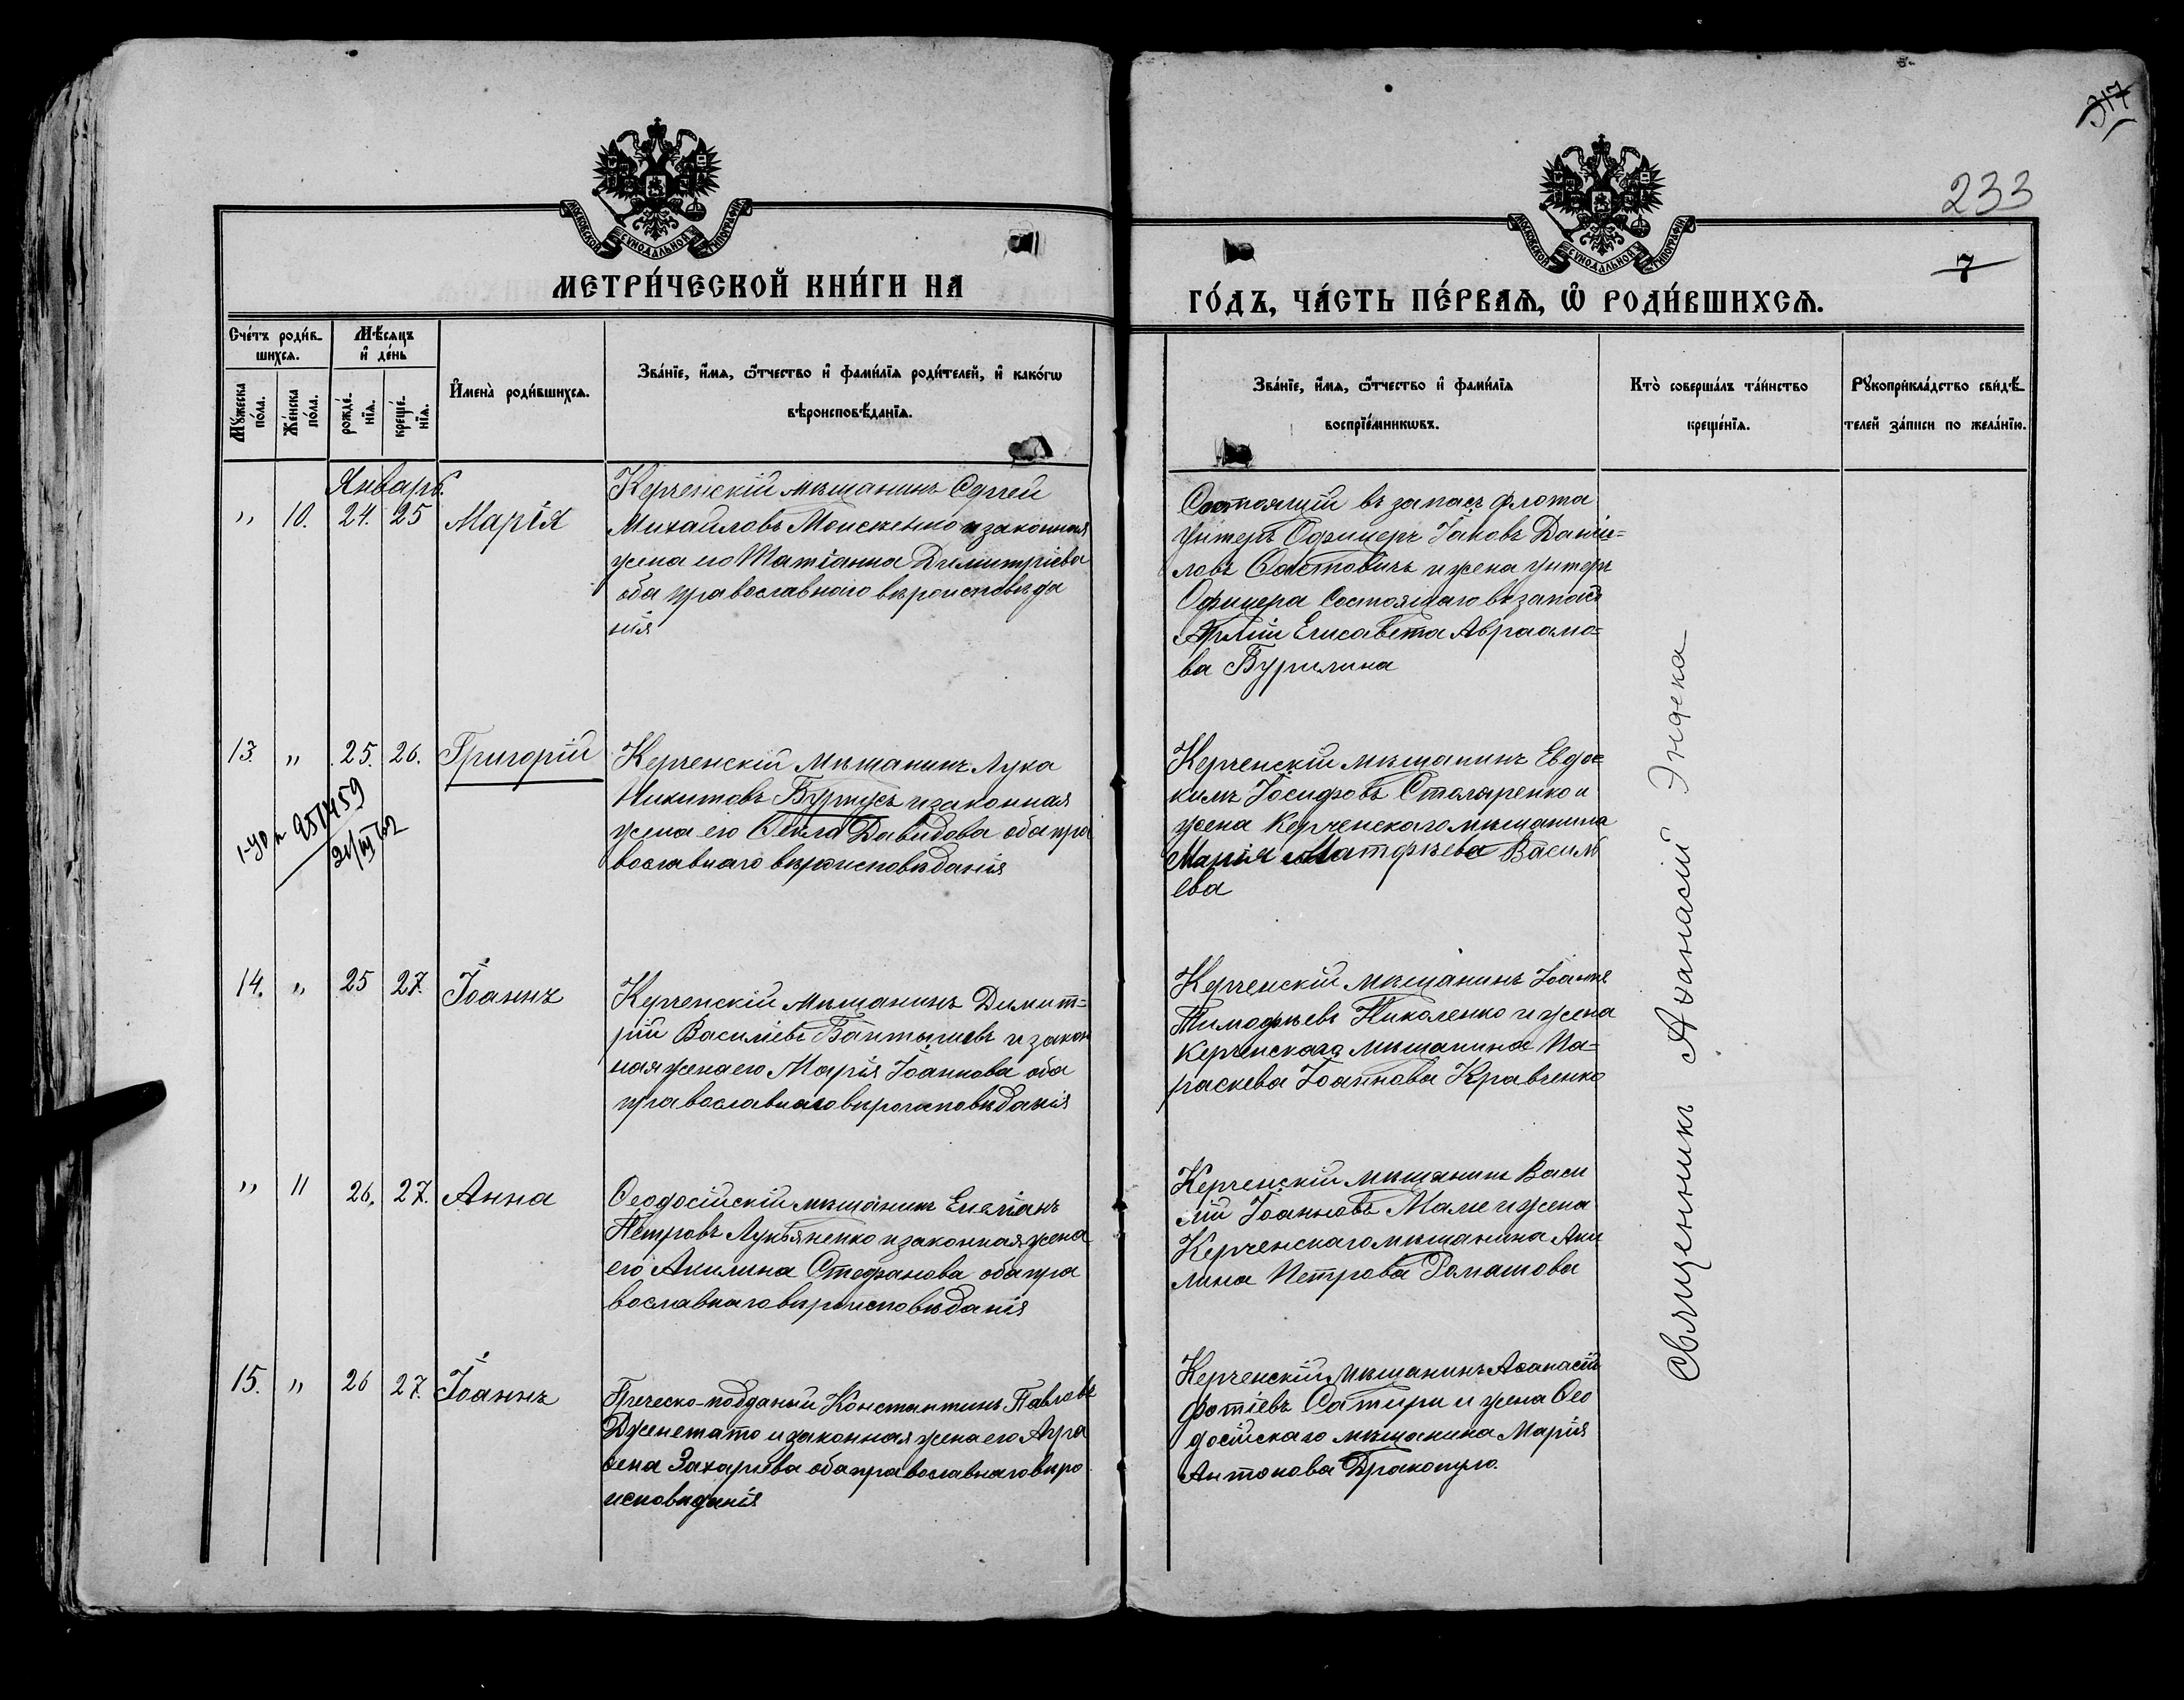 317
233
7
МОСКОВСКОЙ СѴНОДАЛЬНОЙ ТИПОГРАФІИ
МОСКОВСКОЙ СѴНОДАЛЬНОЙ ТИПОГРАФІИ
МЕТРИ́ЧЕСКОЙ КНИ́ГИ НА
ГО́ДЪ, ЧА́СТЬ ПЕ́РВАѦ, Ѡ҆ РОДИ́ВШИХСѦ.
Сче́тъ роди́в-
шихсѧ.
Мꙋ́жеска
по́ла.
Же́нска
по́ла.
Мѣ́сѧцъ
и҆ де́нь
рожде́-
нїѧ.
креще́-
нїѧ.
И҆мена̀ роди́вшихсѧ.
Зва́нїе, и҆́мѧ, ѻ҆́тчество и҆ фами́лїѧ роди́телей, и҆ како́гѡ
вѣроисповѣ́данїѧ.
Зва́нїе, и҆́мѧ, ѻ҆́тчество и҆ фами́лїѧ
воспрїе́мникѡвъ.
Кто̀ соверша́лъ та́инство
креще́нїѧ.
Рꙋкоприкла́дство свидѣ́-
телей за́писи по жела́нїю.
Январь.
" 10. 24. 25 Марія
Керченскій мѣщанинъ Сергей
Михайловъ Моисѣенко и законная
жена его Татіанна Димитріева
оба православнаго вѣроисповѣда
нія
Состоящій въ запасѣ флота
Унтеръ Офицеръ Іаковъ Дании=
ловъ Состовичъ и жена унтеръ
Офицера состоящаго въ запасѣ
Арміи Елисавета Авраамо=
ва Бурилина
13. " 25. 26. Григорій
Керченскій мѣщанинъ Лука
Никитовъ Бурлусъ и законная
жена его Ѳекла Давидова оба пра
вославнаго вѣроисповѣданія
951459
21/III 62
Керченскій мѣщанинъ Евдо=
кимъ Іосифовъ Столяренко и
жена Керченскаго мѣщанина
Марія Матфѣева Василь
ева
14. " 25 27. Іоаннъ
Керченскій мѣщанинъ Димит=
рій Василіевъ Бантышевъ и закон
ная жена его Марія Іоаннова оба
православнаго вѣроисповѣданія
Керченскій мѣщанинъ Іоаннъ
Тимофѣевъ Николенко и жена
Керченскаго мѣщанина Па=
раскева Іоаннова Кравченко
" 11 26. 27. Анна
Ѳеодосійскій мѣщанинъ Емеліанъ
Петровъ Лукьяненко и законная жена
его Акилина Стефанова оба пра
вославнаго вѣроисповѣданія
Керченскій мѣщанинъ Васи
лій Іоанновъ Мале и жена
Керченскаго мѣщанина Аки
лина Петрова Ромашова
15. " 26 27. Іоаннъ
Греческо-подданый Константинъ Павловъ
Дженетато и законная жена его Агра
фена Захаріева оба православнаго вѣро
исповѣданія
Керченскій мѣщанинъ Аѳанасій
Фотіевъ Сатири и жена Ѳео
досійскаго мѣщанина Марія
Антонова Дракопуло.
Священникъ Аѳанасій Эндека